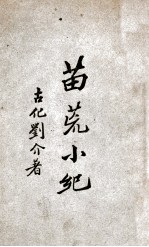 苗荒小紀
古化劉介者